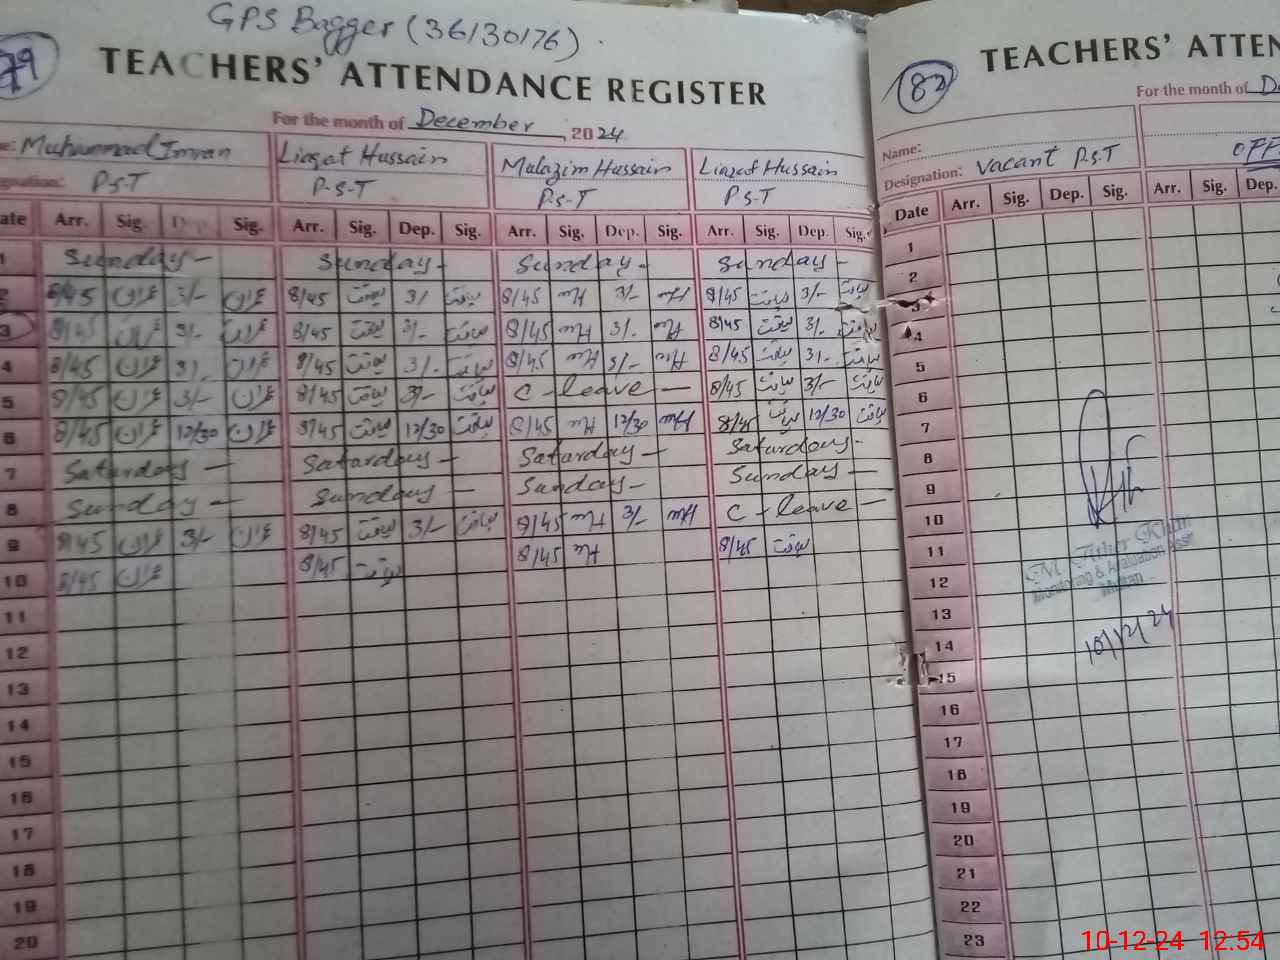 GPS Bagger (36130176).
79
TEACHERS' ATTENDANCE REGISTER
For the month of December, 2024
Name: Muhammad Imran Liaqat Hussain Mulazim Hussain Liaqat Hussain
Designation: P.S.T P-S-T P.S-T P.S-T
Date Arr. Sig. Dep. Sig. Arr. Sig. Dep. Sig. Arr. Sig. Dep. Sig. Arr. Sig. Dep. Sig.
1 Sunday- Sunday- Sunday- Sunday-
2 8/45 عمران 3/- عمران 8/45 لیاقت 3/ لیاقت 8/45 3/- 8/45 لیاقت 3/- لیاقت
3 8/45 عمران 3/- عمران 8/45 لیاقت 3/- لیاقت 8/45 3/. 8/45 لیاقت 3/. لیاقت
4 8/45 عمران 3/. عمران 8/45 لیاقت 3/. لیاقت 8/45 3/- 8/45 لیاقت 3/. لیاقت
5 8/45 عمران 3/- عمران 8/45 لیاقت 3/- لیاقت C-leave- 8/45 لیاقت 3/- لیاقت
6 8/45 عمران 12/30 عمران 8/45 لیاقت 12/30 لیاقت 8/45 12/30 8/45 لیاقت 12/30 لیاقت
7 Saturday- Saturday- Saturday- Saturday-
8 Sunday- Sunday- Sunday- Sunday-
9 8/45 عمران 3/- عمران 8/45 لیاقت 3/- لیاقت 8/45 3/- C-leave-
10 8/45 عمران 8/45 لیاقت 8/45 8/45 لیاقت
11
12
13
14
15
16
17
18
19
20
82
TEACHERS' ATTEN
For the month of De
Name:
Designation: Vacant P.S.T OFF
Date Arr. Sig. Dep. Sig. Arr. Sig. Dep.
1
2
3
4
5
6
7
8
9
10
11
12
13
14
15
16
17
18
19
20
21
22
23
Monitoring & Evaluation Asstt
Multan
10/12/24
10-12-24 12:54